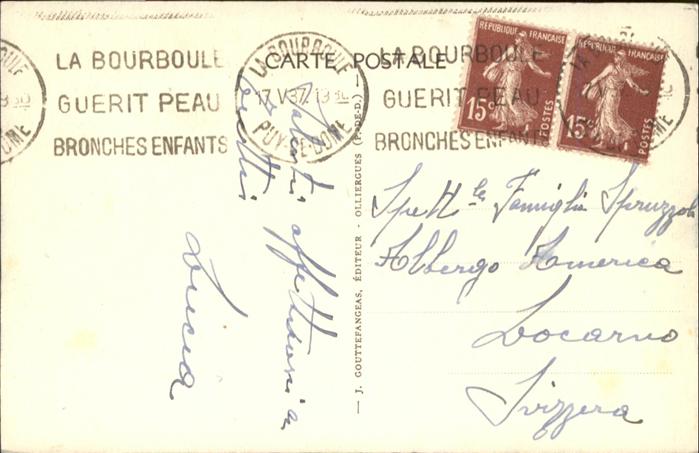 CARTE POSTALE
LA BOURBOULE
GUERIT PEAU
BRONCHES ENFANTS
LA BOURBOULE
17 V 37. 13 30
PUY-DE-DOME
LA BOURBOULE
GUERIT PEAU
BRONCHES ENFANTS
REPUBLIQUE FRANÇAISE
15c
POSTES
REPUBLIQUE FRANÇAISE
15c
POSTES
Saluti affettuosi a
tutti
Lucia
— J. GOUTTEFANGEAS, ÉDITEUR - OLLIERGUES (P.-DE-D.) —
Spett. le Famiglia
Albergo America
Locarno
Svizzera